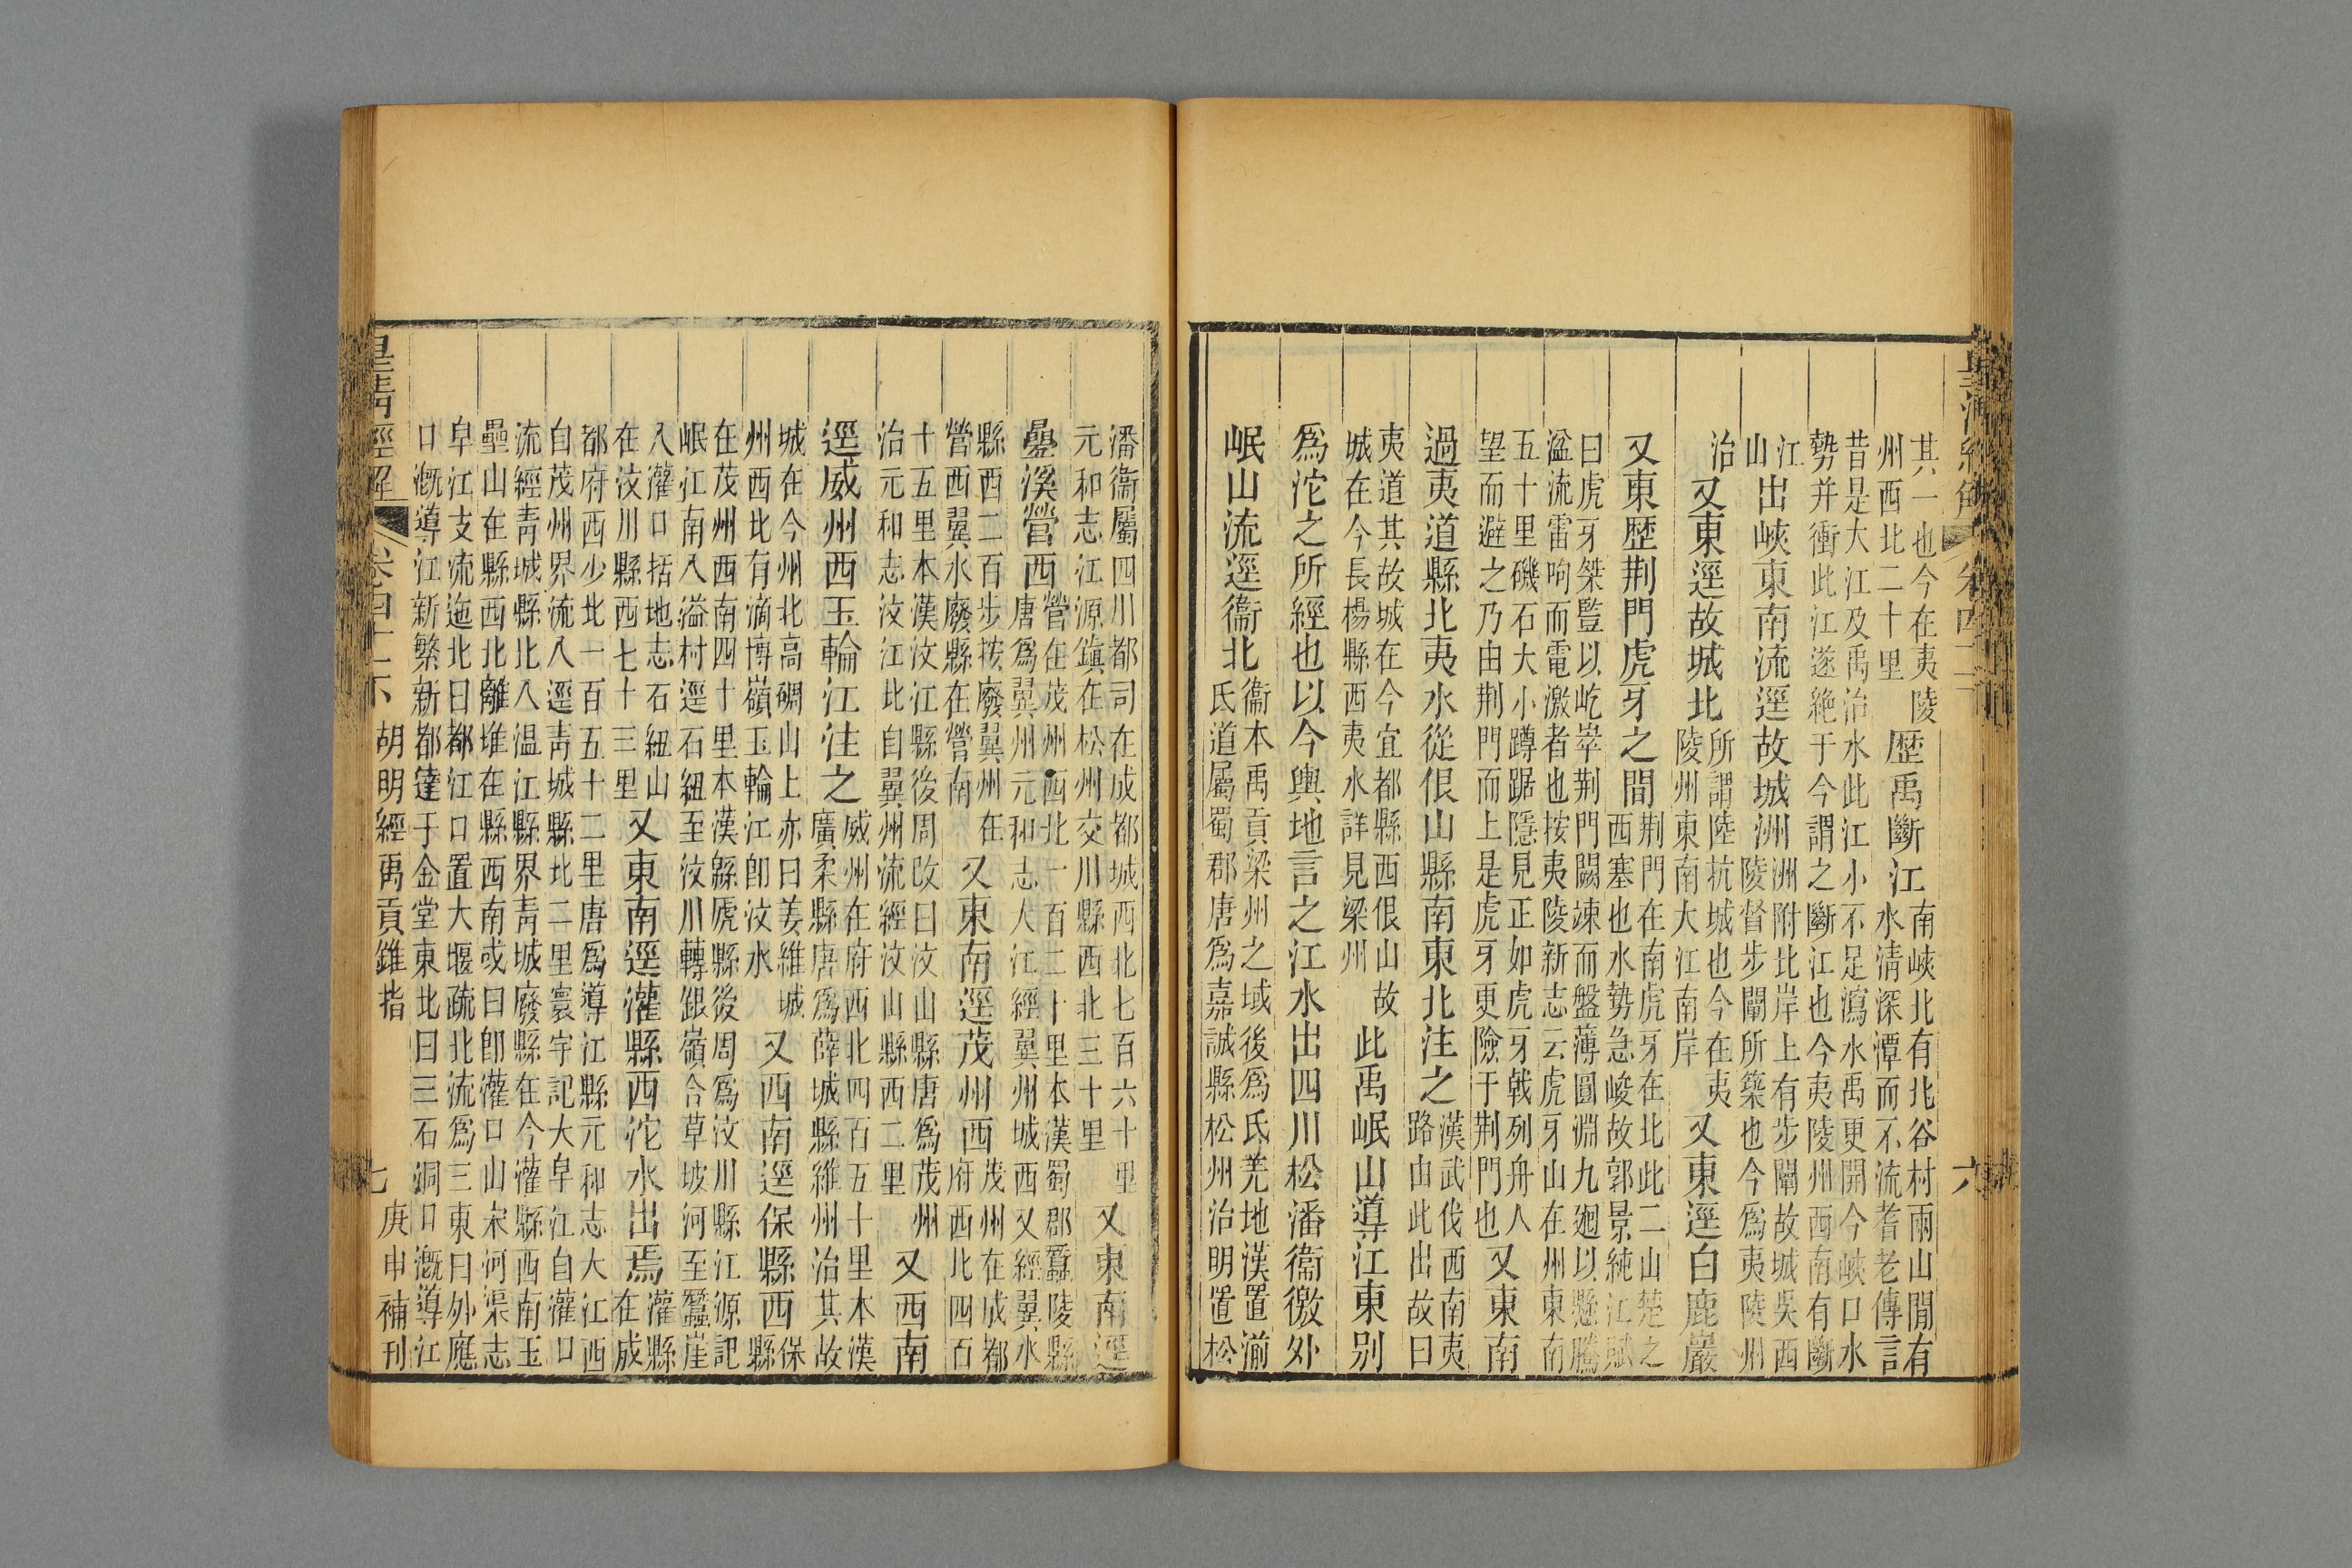 六
其一也今在夷陵
州西北二十里
歷禹斷江
南峽北有北谷村兩山閒有
水清深潭而不流耆老傳言
昔是大江及禹治水此江小不足瀉水禹更開今峽口水
勢并衝此江遂絶于今謂之斷江也今夷陵州西南有斷
江
山
出峽東南流逕故城洲
洲附北岸上有步闡故城吳西
陵督步闡所築也今爲夷陵州
治
又東逕故城北
所謂陸抗城也今在夷
陵州東南大江南岸
又東逕白鹿巖
又東歷荆門虎牙之間
荆門在南虎牙在北此二山楚之
西塞也水勢急峻故郭景純江賦
曰虎牙桀豎以屹崒荆門闕竦而盤薄圓淵九廻以懸騰
湓流雷呴而電激者也按夷陵新志云虎牙山在州東南
五十里磯石大小蹲踞隱見正如虎牙戟列舟人
望而避之乃由荆門而上是虎牙更險于荆門也
又東南
過夷道縣北夷水從佷山縣南東北注之
漢武伐西南夷
路由此出故曰
夷道其故城在今宜都縣西佷山故
城在今長楊縣西夷水詳見梁州
此禹岷山導江東别
爲沱之所經也以今輿地言之江水出四川松潘衞徼外
岷山流逕衞北
衞本禹貢梁州之域後爲氐羌地漢置湔
氐道屬蜀郡唐爲嘉誠縣松州治明置松
潘衞屬四川都司在成都城西北七百六十里
元和志江源鎮在松州交川縣西北三十里
又東南逕
疊溪營西
營在茂州西北一百二十里本漢蜀郡蠶陵縣
唐爲翼州元和志大江經翼州城西又經翼水
縣西二百步按廢翼州在
營西翼水廢縣在營南
又東南逕茂州西
茂州在成都
府西北四百
十五里本漢汶江縣後周改曰汶山縣唐爲茂州
治元和志汶江北自翼州流經汶山縣西二里
又西南
逕威州西玉輪江注之
威州在府西北四百五十里本漢
廣柔縣唐爲薛城縣維州治其故
城在今州北高碉山上亦曰姜維城
州西北有滴博嶺玉輪江卽汶水
又西南逕保縣西
保
縣
在茂州西南四十里本漢緜虒縣後周爲汶川縣江源記
岷江南入溢村逕石紐至汶川轉銀嶺合草坡河至蠶崖
入灌口括地志石紐山
在汶川縣西七十三里
又東南逕灌縣西沱水出焉
灌縣
在成
都府西少北一百五十二里唐爲導江縣元和志大江西
自茂州界流入逕青城縣北二里寰宇記大皁江自灌口
流經青城縣北入温江縣界青城廢縣在今灌縣西南玉
壘山在縣西北離堆在縣西南或曰卽灌口山宋河渠志
皁江支流迤北曰都江口置大堰疏北流爲三東曰外應
口漑導江新繁新都達于金堂東北曰三石洞口漑導江
皇清經解 卷四十二下 胡明經禹貢錐指 七 庚申補刊